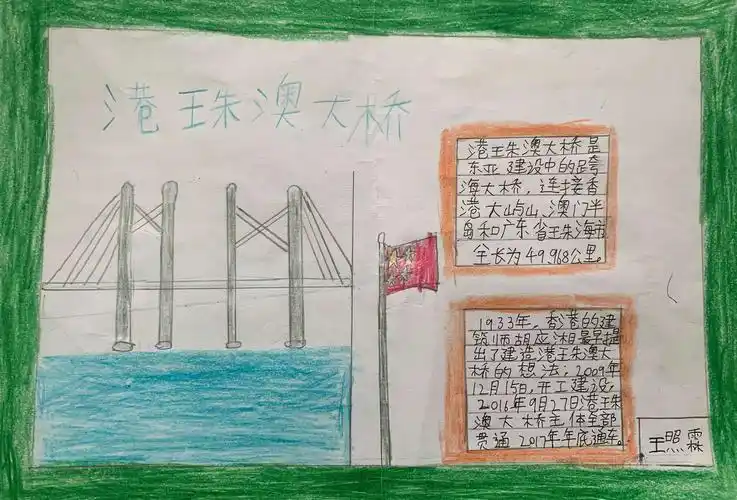 港珠澳大桥
港珠澳大桥是
东亚建设中的跨
海大桥，连接香
港大屿山、澳门半
岛和广东省珠海市
全长为49.968公里。
1933年，香港的建
筑师胡应湘最早提
出了建造港珠澳大
桥的想法；2009年
12月15日，开工建设；
2016年9月27日港珠
澳大桥主体全部
贯通2017年年底通车。
王照霖